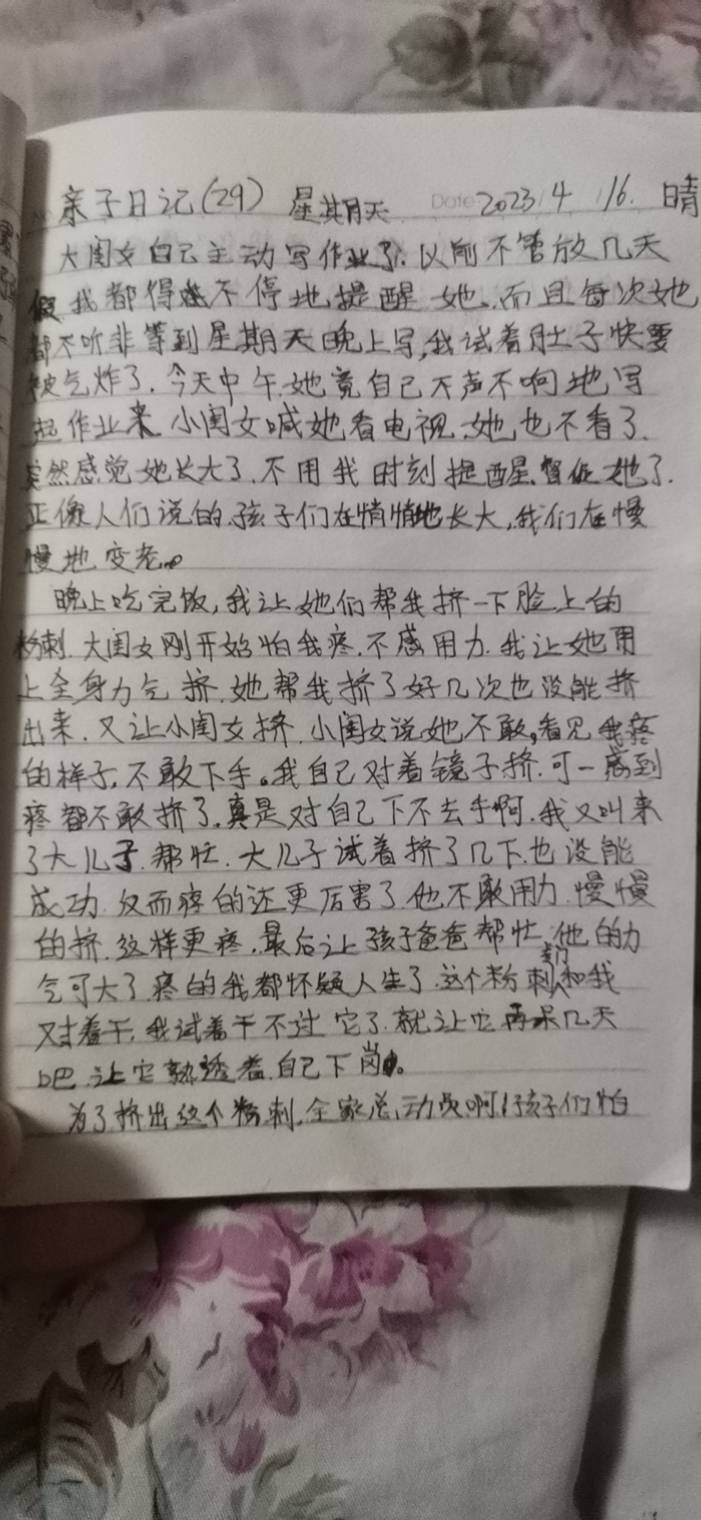 亲子日记(29) 星期天 Date 2023 4 16. 晴
大闺女自己主动写作业了.以前不管放几天
假我都得不停地提醒她.而且每次她
都不听非等到星期天晚上写,我试着肚子快要
被气炸了.今天中午.她竟自己不声不响地写
起作业来.小闺女喊她看电视.她也不看了.
突然感觉她长大了.不用我时刻提醒.督促她了.
正像人们说的.孩子们在悄悄地长大,我们在慢
慢地变老。
晚上吃完饭,我让她们帮我挤一下脸上的
粉刺.大闺女刚开始怕我疼.不感用力.我让她用
上全身力气挤.她帮我挤了好几次也没能挤
出来.又让小闺女挤.小闺女说她不敢,看见我疼
的样子,不敢下手。我自己对着镜子挤.可一感到
疼都不敢挤了.真是对自己下不去手啊.我又叫来
了大儿子.帮忙.大儿子试着挤了几下.也没能
成功.反而疼的还更厉害了.他不敢用力.慢慢
的挤.这样更疼.最后让孩子爸爸帮忙.他的力
气可大了.疼的我都怀疑人生了.这个粉刺和我
对着干,我试着干不过它了.就让它再呆几天
吧.让它熟透着.自己下岗。
为了挤出这个粉刺.全家总动员啊!孩子们怕